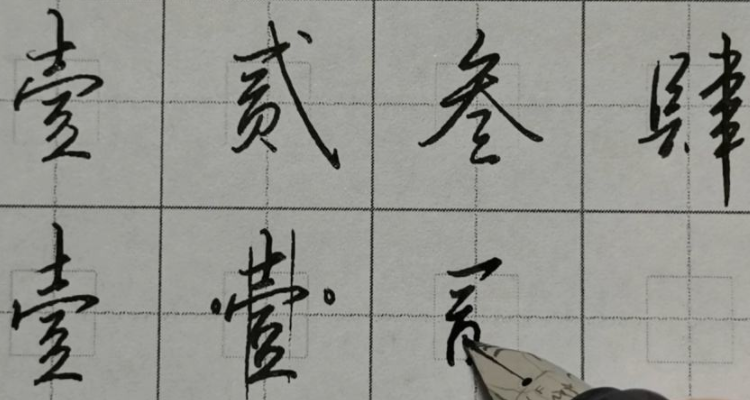 壹 贰 叁 肆
壹 壹